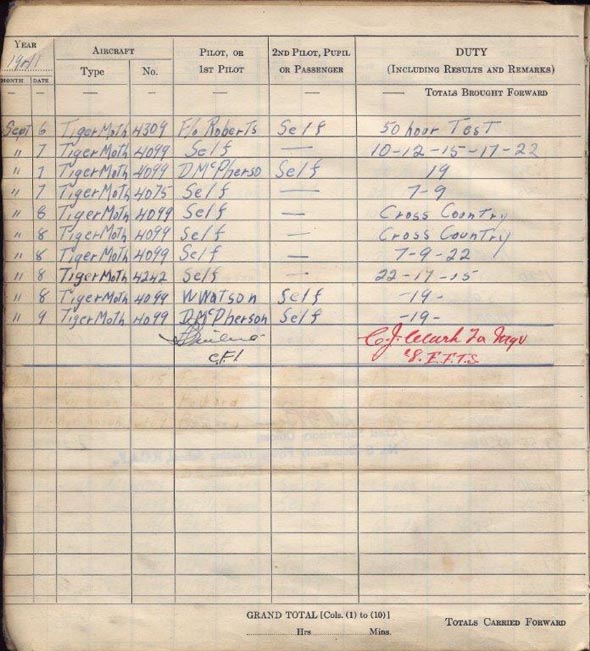 YEAR AIRCRAFT PILOT, OR 2ND PILOT, PUPIL DUTY
1941 Type No. 1ST PILOT OR PASSENGER (INCLUDING RESULTS AND REMARKS)
MONTH DATE
— — — — — — — TOTALS BROUGHT FORWARD
Sept 6 Tiger Moth 4309 F/o Roberts Self 50 hour Test
" 7 Tiger Moth 4099 Self — 10-12-15-17-22
" 7 Tiger Moth 4099 D McPherso Self 19
" 7 Tiger Moth 4075 Self — 7-9
" 8 Tiger Moth 4099 Self — Cross Country
" 8 Tiger Moth 4099 Self — Cross Country
" 8 Tiger Moth 4099 Self — 7-9-22
" 8 Tiger Moth 4242 Self — 22-17-15
" 8 Tiger Moth 4099 W Watson Self -19-
" 9 Tiger Moth 4099 D. McPherson Self -19-
C.F.I. E.F.T.S.
GRAND TOTAL [Cols. (1) to (10)]
Hrs Mins. TOTALS CARRIED FORWARD